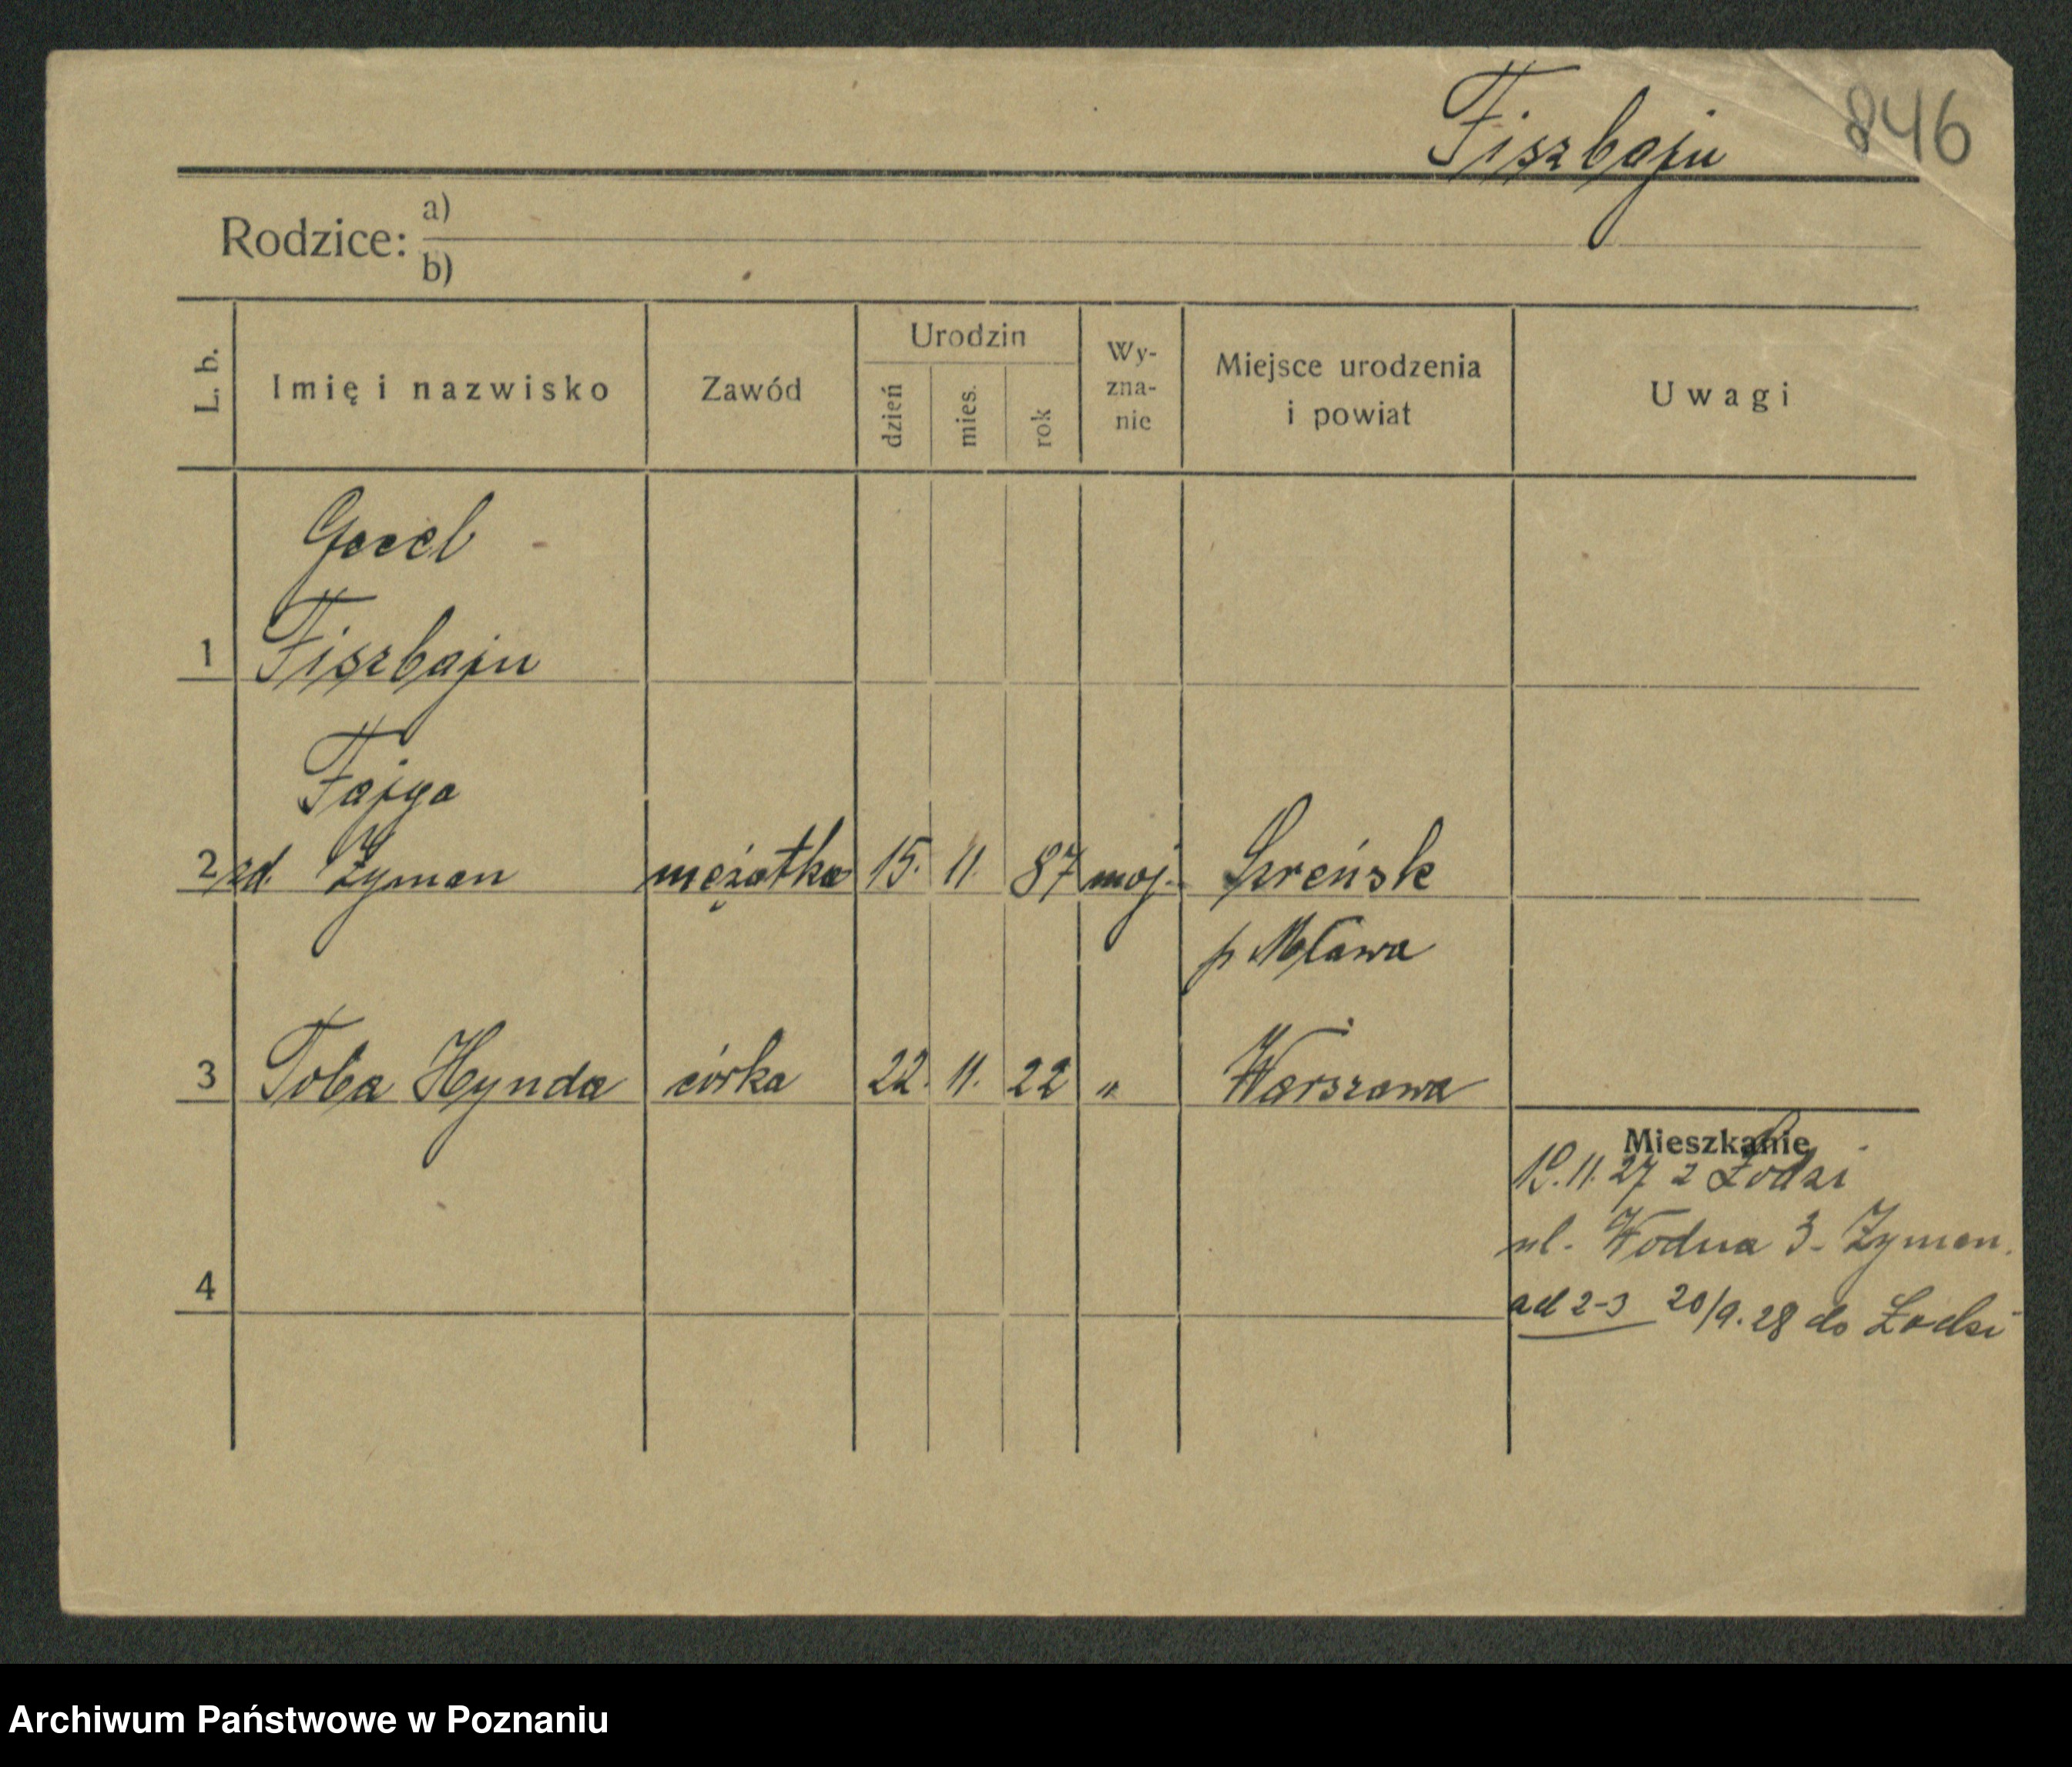 Fiszbajn 846
Rodzice: a)
b)
L. b. Imię i nazwisko Zawód Urodzin dzień mies. rok Wy-zna-nie Miejsce urodzenia i powiat Uwagi
Gecel
1 Fiszbajn
Fajga
2 zd. Zyman mężatka 15. 11. 87 moj. Szreńsk
p Mława
3 Toba Hynda córka 22. 11. 22 " Warszawa
Mieszkanie
19.11.27 z Łodzi
ul. Wodna 3 - Zyman.
4
ad 2-3 20/9.28 do Łodzi
Archiwum Państwowe w Poznaniu